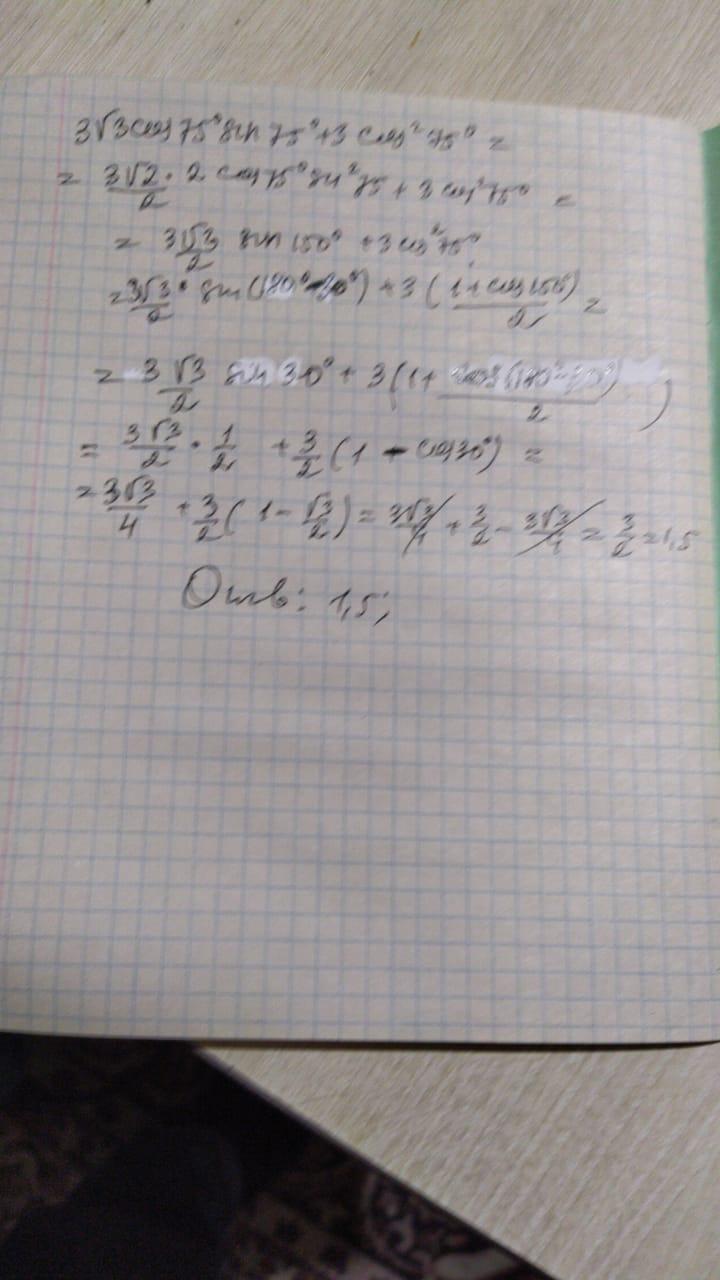 3√3 cos 75° sin 75° + 3 cos² 75° =
= 3√2/2 · 2 cos 75° sin² 75 + 3 cos² 75° =
= 3√3/2 sin 150° + 3 cos² 75°
= 3√3/2 · sin(180° - 30°) + 3 (1 + cos 150°)/2 =
= 3√3/2 sin 30° + 3(1 + cos(180° - 30°)/2)
= 3√3/2 · 1/2 + 3/2 (1 - cos 30°) =
= 3√3/4 + 3/2 (1 - √3/2) = 3√3/4 + 3/2 - 3√3/4 = 3/2 = 1,5
Ответ: 1,5;